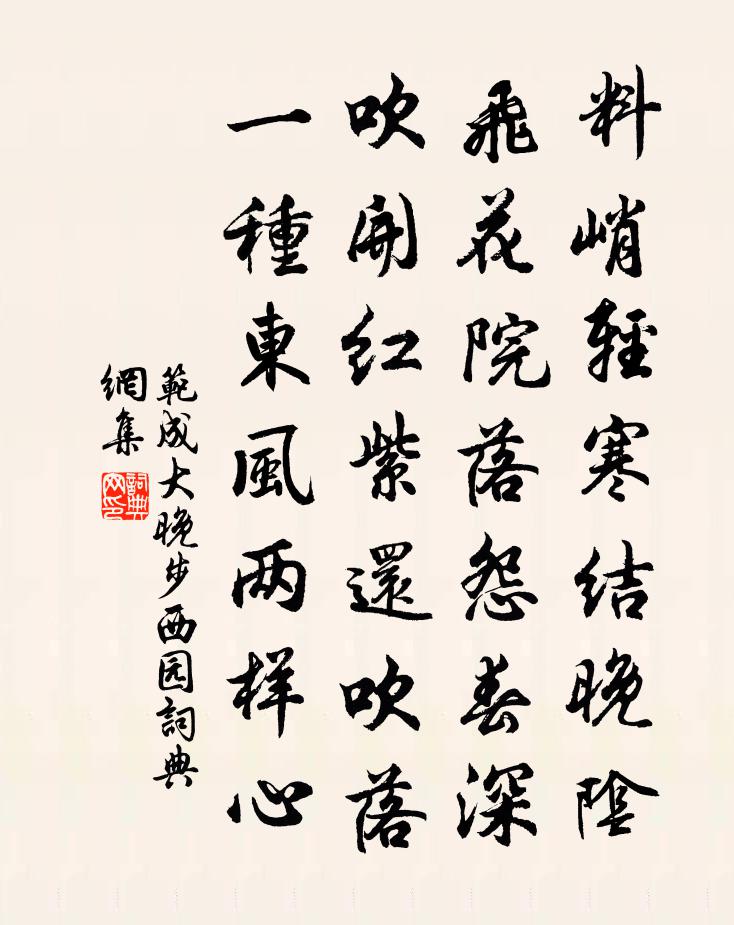 料峭輕寒結晚陰
飛花院落怨春深
吹開红紫還吹落
一種東風两样心
範成大晚步西园詞典
網集
詞典
网印